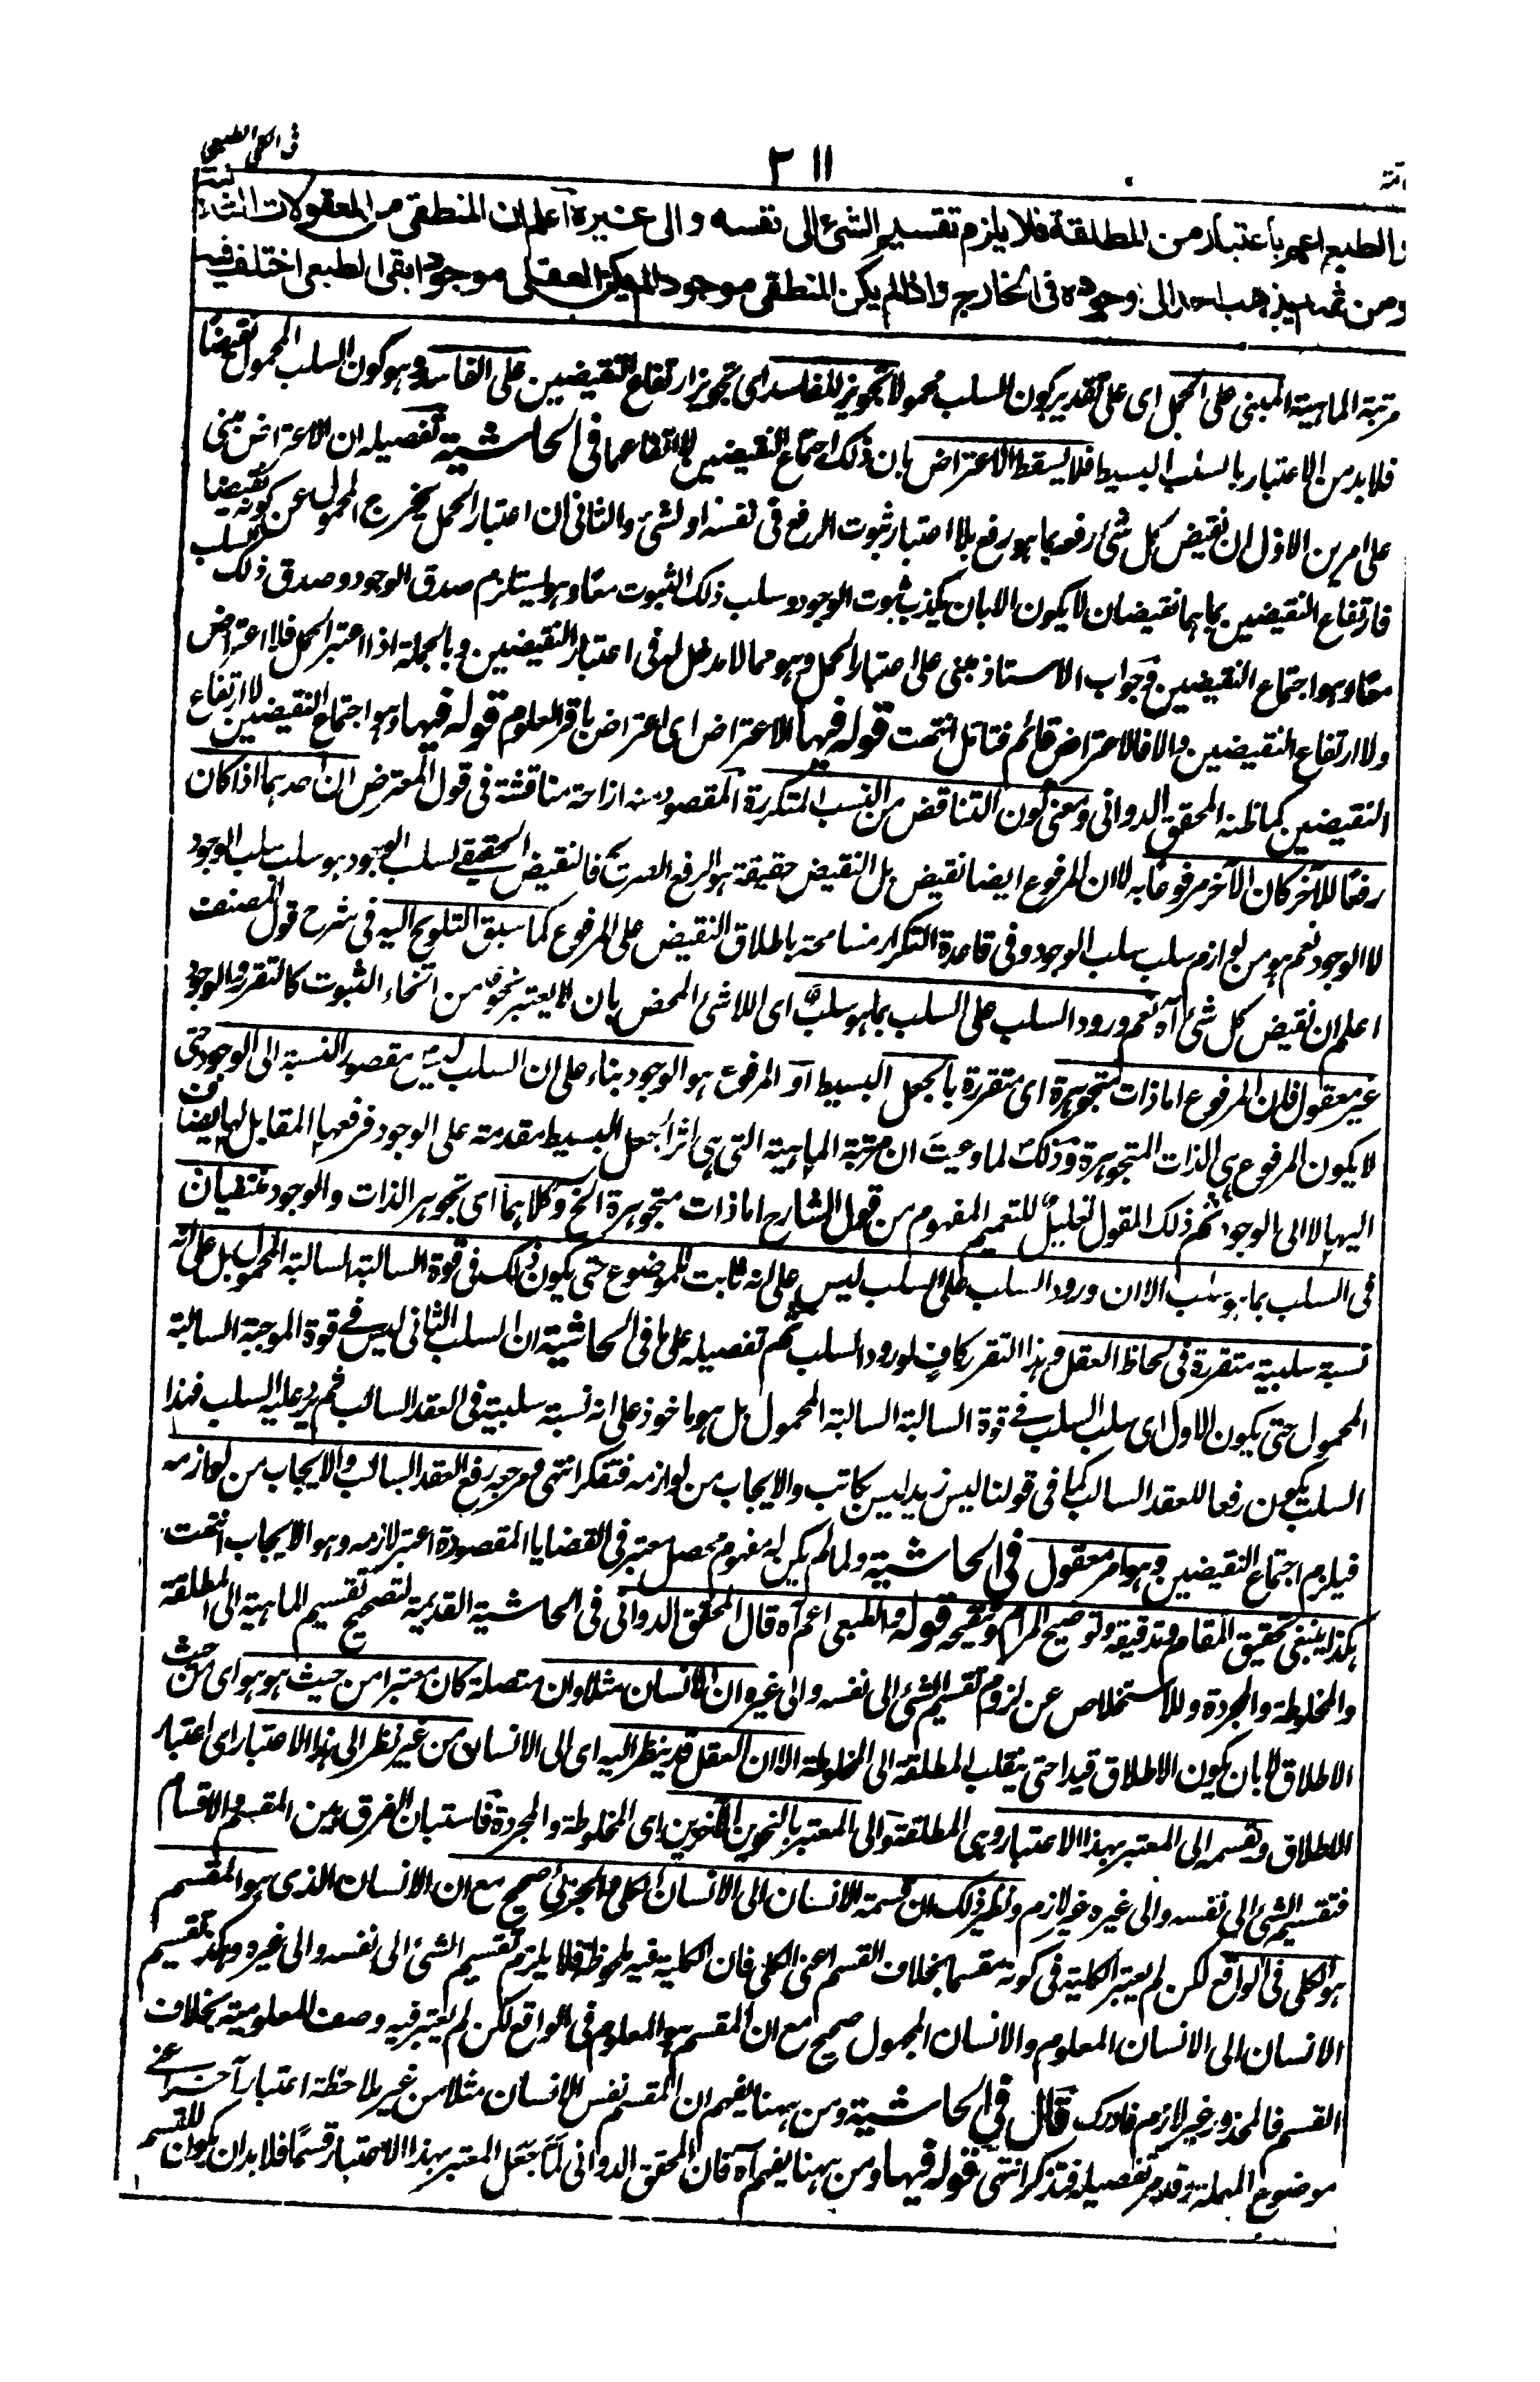 فى الكلى الطبعى
٣١١
والطبعى اعم باعتباره من المطلقة فلا يلزم تقسيم الشئ الى نفسه والى غيره اعلم ان المنطقى من المعقولات الثانية
ومن ثم لم يذهب احد الى وجوده فى الخارج واذا لم يكن المنطقى موجودا لم يكن العقلى موجودا بقى الطبعى اختلف فيه
مرتبة الماهية المبنى على الحمل اى على تقدير كون السلب محمولا تجويز للفاسد اى تجويز ارتفاع النقيضين على الفاسد وهو كون السلب المحمول نقيضا
فلا بد من الاعتبار بالسلب البسيط فلا يسقط الاعتراض بان ذلك اجتماع النقيضين لا ارتفاعهما فى الحاشية تفصيله ان الاعتراض مبنى
على امرين الاول ان نقيض كل شئ رفعه بما هو رفع بلا اعتبار ثبوت الرفع فى نفسه او لشئ والثانى ان اعتبار الحمل يخرج المحمول عن كونه نقيضا
فارتفاع النقيضين بما هما نقيضان لا يكون الا بان يكذب ثبوت الوجود وسلب ذلك الثبوت معا وهو يستلزم صدق الوجود وصدق ذلك السلب
معا وهو اجتماع النقيضين وجواب الاستاذ مبنى على اعتبار الحمل وهو مما لا مدخل له فى اعتبار النقيضين وبالجملة اذا اعتبر الحمل فلا اعتراض
ولا ارتفاع النقيضين والا فالاعتراض قائم فتامل انتهت قوله فيها الاعتراض اى اعتراض باقر العلوم قوله فيها وهو اجتماع النقيضين لا ارتفاع
النقيضين كما ظنه المحقق الدوانى ومعنى كون التناقض من النسب المتكررة المقصود منه ازاحة مناقشة فى قول المعترض ان احدهما اذا كان
رفعا للآخر كان الآخر مرفوعا به لا ان المرفوع ايضا نقيض بل النقيض حقيقة هو الرفع الصرف فالنقيض الحقيقى لسلب الوجود هو سلب سلب الوجود
لا الوجود نعم هو من لوازم سلب سلب الوجود وفى قاعدة التكرار مسامحة باطلاق النقيض على المرفوع كما سبق التلويح اليه فى شرح قول المصنف
اعلم ان نقيض كل شئ آه نعم ورود السلب على السلب بما هو سلب اى اللا شئ المحض بان لا يعتبر نحو من انحاء الثبوت كالتقرر والوجود
غير معقول فان المرفوع اما ذات متجوهرة اى متقررة بالجعل البسيط او المرفوع هو الوجود بناء على ان السلب ليس مقصور النسبة الى الوجود حتى
لا يكون المرفوع هى الذات المتجوهرة وذلك لما وعيت ان مرتبة الماهية التى هى اثر الجعل البسيط مقدمة على الوجود فرفعها المقابل لها يضاف
اليها لا الى الوجود ثم ذلك المقول تعليل للتعميم المفهوم من قول الشارح اما ذات متجوهرة الخ وكلاهما اى تجوهر الذات والوجود منتفيان
فى السلب بما هو سلب الا ان ورود السلب على السلب ليس على انه ثابت للموضوع حتى يكون ذلك فى قوة السالبة السالبة المحمول بل على انه
نسبة سلبية متقررة فى لحاظ العقل وهذا التقرر كاف لورود السلب ثم تفصيله على ما فى الحاشية ان السلب الثانى ليس فى قوة الموجبة السالبة
المحمول حتى يكون الاول اى سلب السلب فى قوة السالبة السالبة المحمول بل هو ماخوذ على انه نسبة سلبية فى العقد السالب ثم يرد عليه السلب فهذا
السلب يكون رفعا للعقد السالب كما فى قولنا ليس زيد ليس بكاتب والايجاب من لوازمه فتفكر انتهى ومرجعه رفع العقد السالب والايجاب من لوازمه
فيلزم اجتماع النقيضين وهو امر معقول فى الحاشية ولما لم يكن له مفهوم محصل معتبر فى القضايا المقصودة اعتبر لازمه وهو الايجاب انتهت
هكذا ينبغى تحقيق المقام وتدقيقه وتوضيح المرام وتنقيحه قوله والطبعى اعم آه قال المحقق الدوانى فى الحاشية القديمة لتصحيح تقسيم الماهية الى المطلقة
والمخلوطة والمجردة وللاستخلاص عن لزوم تقسيم الشئ الى نفسه والى غيره ان الانسان مثلا وان متصلة كان معتبرا من حيث هو هو اى من حيث
الاطلاق لا بان يكون الاطلاق قيدا حتى ينقلب المطلقة الى المخلوطة الا ان العقل قد ينظر اليه اى الى الانسان من غير نظر الى هذا الاعتبار اى اعتبار
الاطلاق وتقسمه الى المعتبر بهذا الاعتبار وهى المطلقة والى المعتبر بالنحوين الآخرين اى المخلوطة والمجردة فاستبان الفرق بين المقسم والاقسام
فتقسيم الشئ الى نفسه والى غيره غير لازم ونظير ذلك ان قسمة الانسان الى الانسان الكلى والجزئى صحيح مع ان الانسان الذى هو المقسم
هو الكلى فى الواقع لكن لم يعتبر الكلية فى كونه مقسما بخلاف القسم اعنى الكلى فان الكلية فيه ملحوظة فلا يلزم تقسيم الشئ الى نفسه والى غيره وهكذا تقسيم
الانسان الى الانسان المعلوم والانسان المجهول صحيح مع ان المقسم هو المعلوم فى الواقع لكن لم يعتبر فيه وصف المعلومية بخلاف
القسم فالمحذور غير لازم فادرك قال فى الحاشية ومن ههنا يفهم ان المقسم نفس الانسان مثلا من غير ملاحظة اعتبار آخر اعنى
موضوع المهملة وقد مر تفصيله فتذكر انتهى قوله فيها ومن ههنا يفهم آه فان المحقق الدوانى لما جعل المعتبر بهذا الاعتبار قسما فلا بد ان يكون للقسم